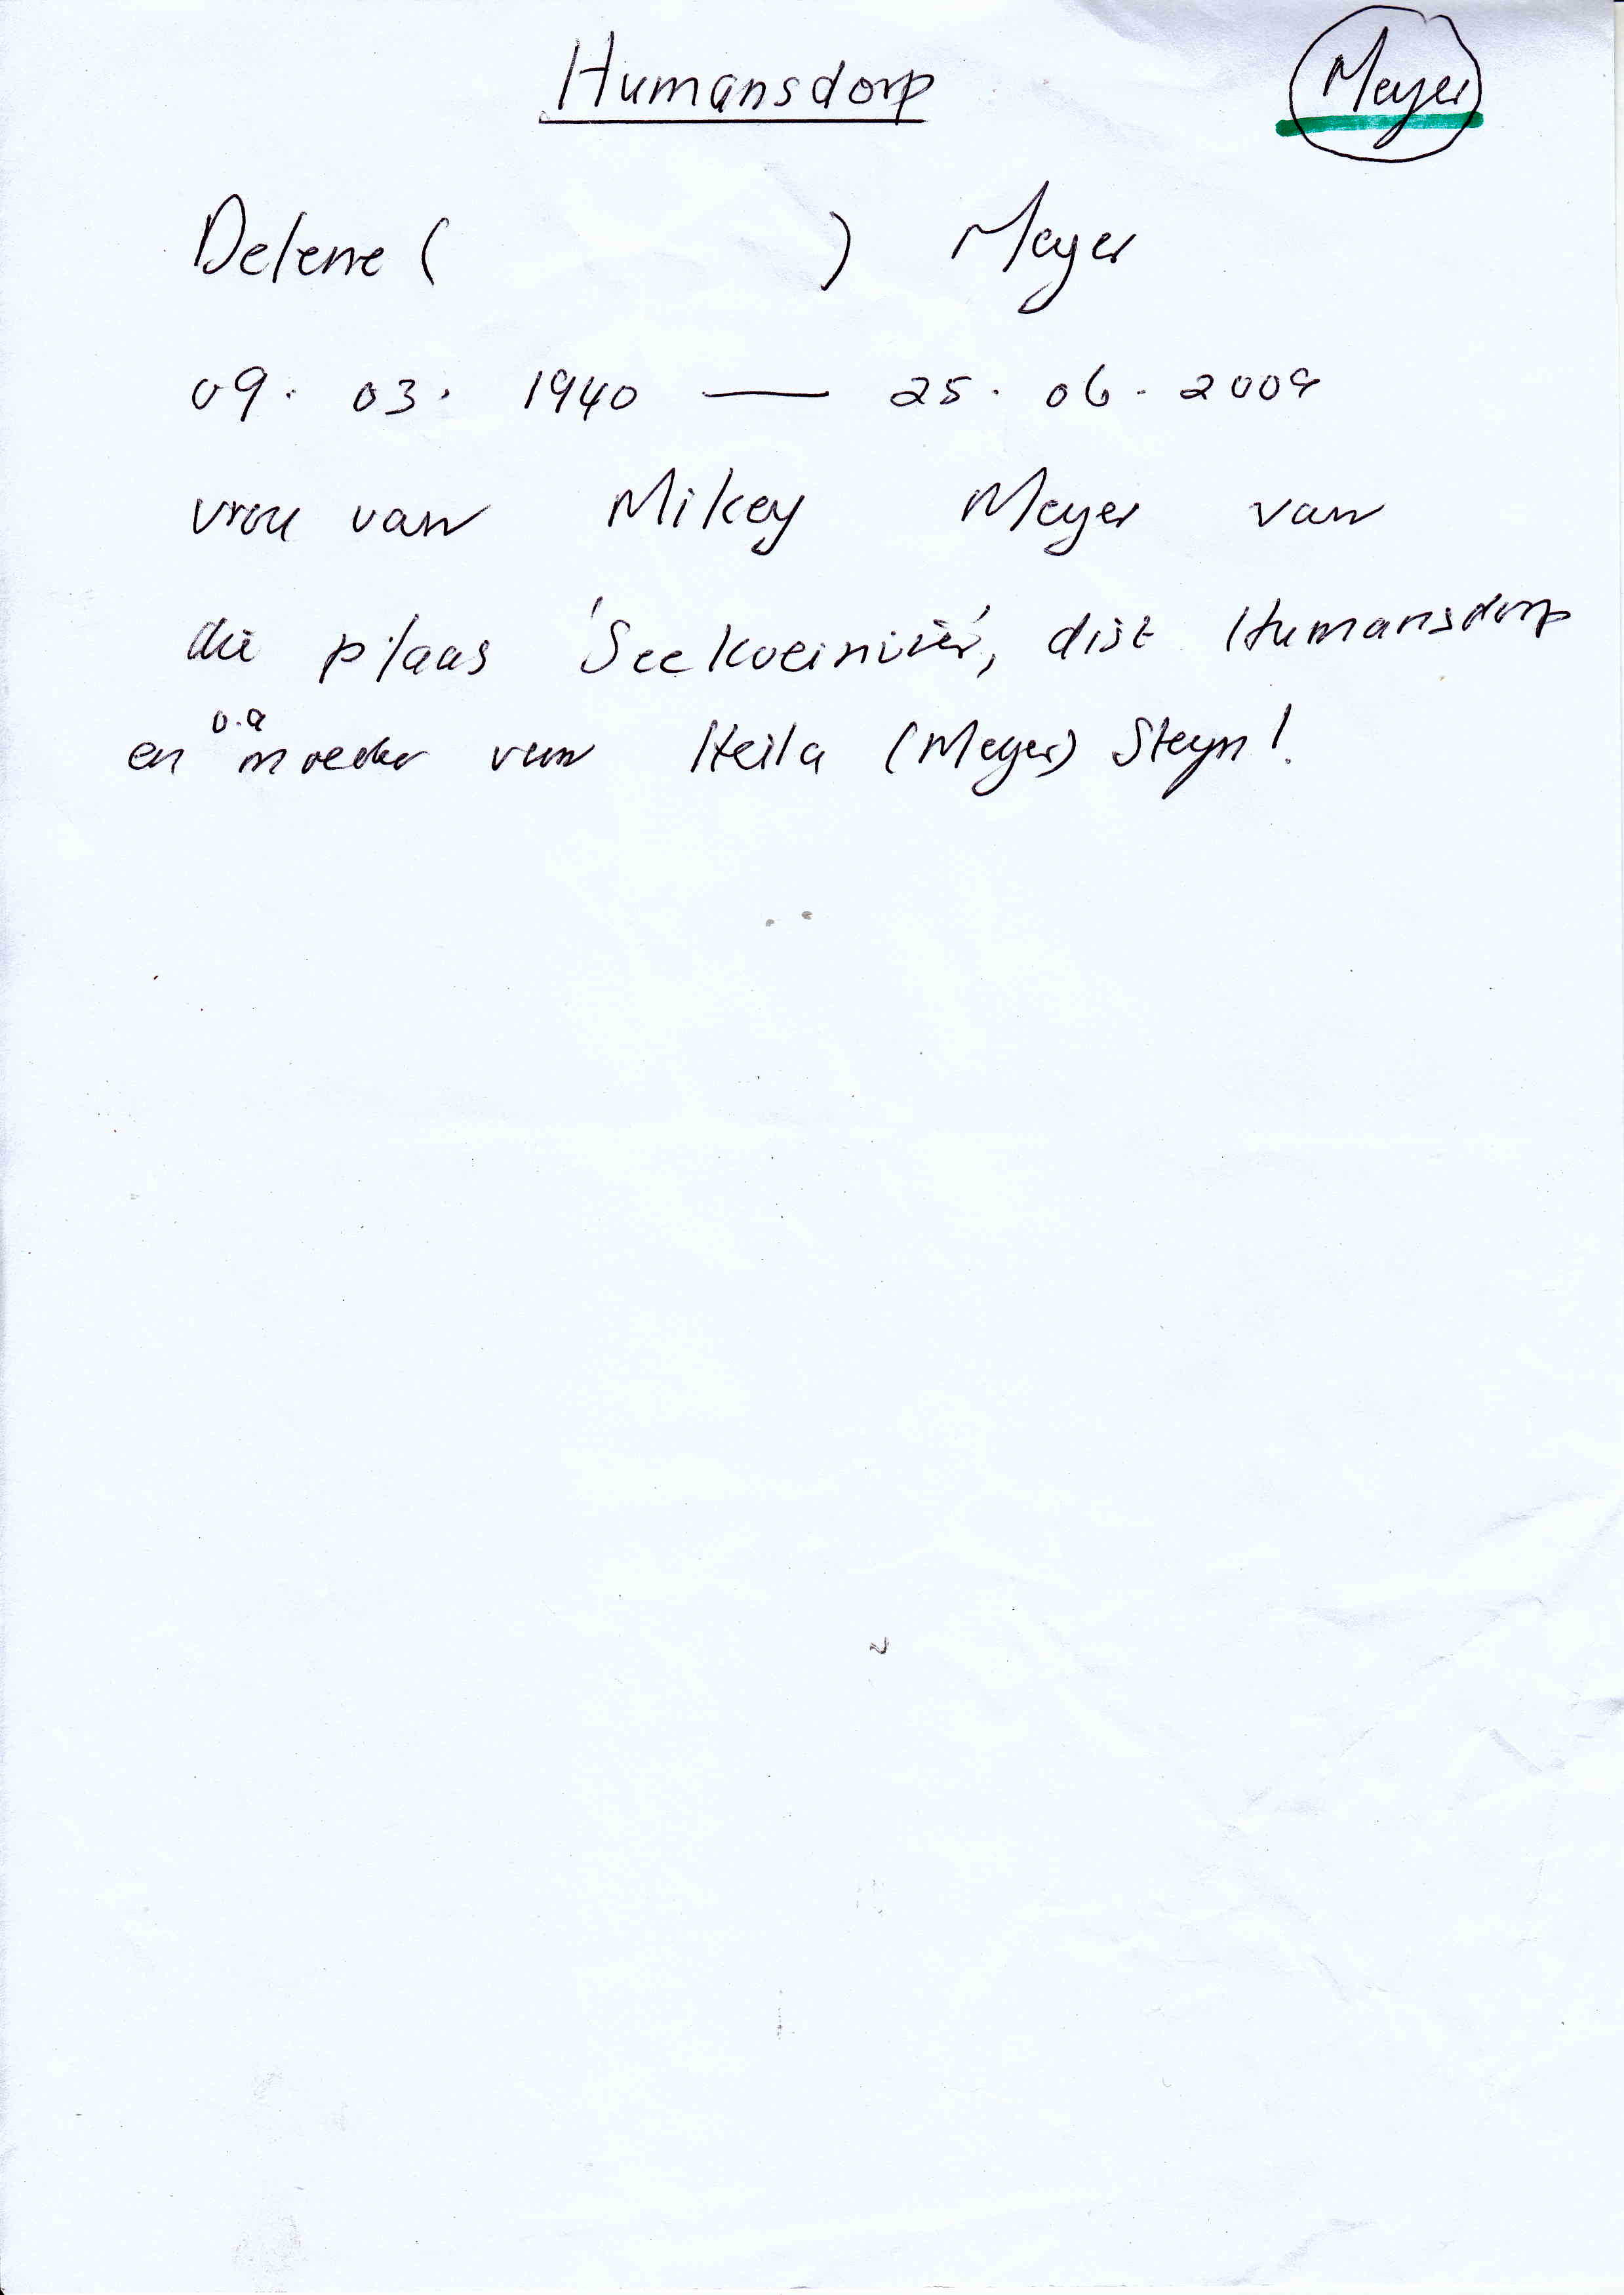 Humansdorp
Meyer
Delene ( ) Meyer
09. 03. 1940 — 25. 06. 2009
vrou van Mikey Meyer van
die plaas 'Seekoeirivier', dist Humansdorp
en o.a moeder van Heila (Meyer) Steyn!